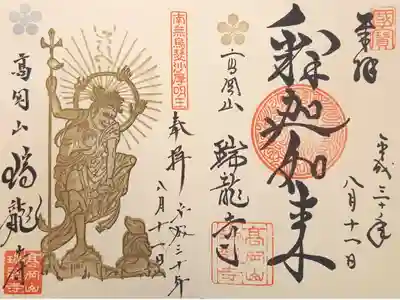 國寶
奉拝
平成三十年
八月十一日
釋迦如来
高岡山
瑞龍寺
高岡山
瑞龍寺
南無烏蒭沙摩明王
奉拝
平成三十年
八月十一日
高岡山
瑞龍寺
高岡山
瑞龍寺